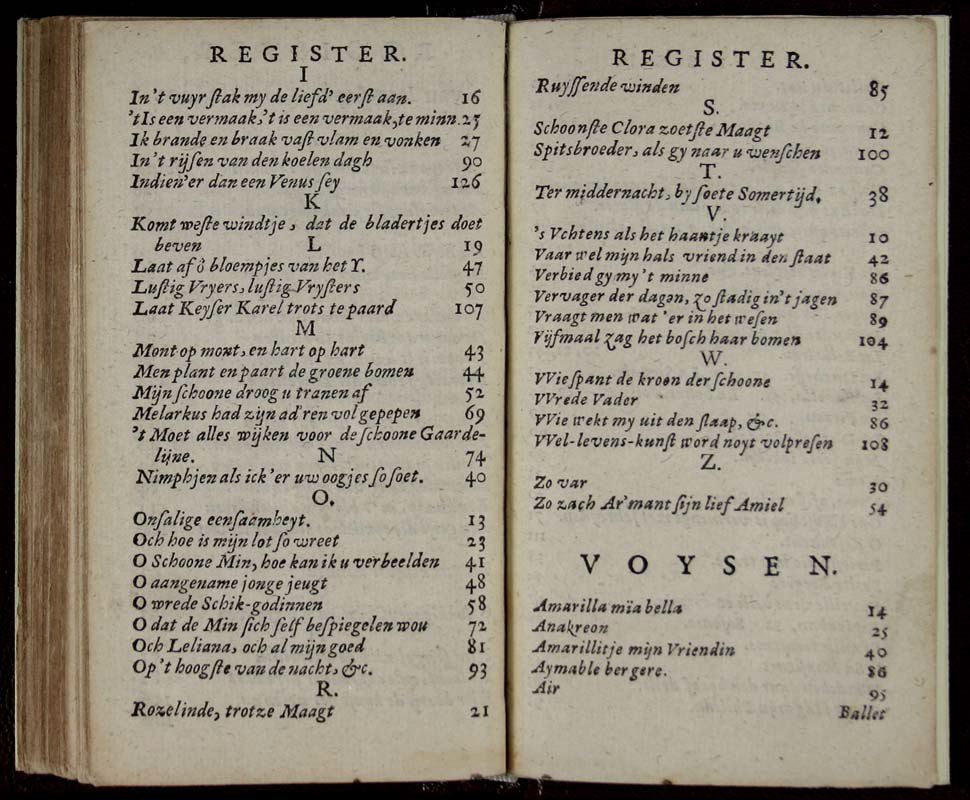 REGISTER.
I
In't vuyr ſtak my de liefd' eerſt aan. 16
'tIs een vermaak, 't is een vermaak, te minn. 25
Ik brande en braak vaſt vlam en vonken 27
In't rijſen van den koelen dagh 90
Indien'er dan een Venus ſey 126
K
Komt weſte windtje, dat de bladertjes doet
beven L 19
Laat af ô bloempjes van het Y. 47
Luſtig Vryers, luſtig Vryſters 50
Laat Keyſer Karel trots te paard 107
M
Mont op mont, en hart op hart 43
Men plant en paart de groene bomen 44
Mijn ſchoone droog u tranen af 52
Melarkus had zijn ad'ren vol gepepen 69
't Moet alles wijken voor de ſchoone Gaarde-
lijne. N 74
Nimphjen als ick'er uw oogjes ſo ſoet. 40
O.
Onſalige eenſaamheyt. 13
Och hoe is mijn lot ſo wreet 23
O Schoone Min, hoe kan ik u verbeelden 41
O aangename jonge jeugt 48
O wrede Schik-godinnen 58
O dat de Min ſich ſelf beſpiegelen wou 72
Och Leliana, och al mijn goed 81
Op't hoogſte van de nacht, &c. 93
R.
Rozelinde, trotze Maagt 21
REGISTER.
Ruyſſende winden 85
S.
Schoonſte Clora zoetſte Maagt 12
Spitsbroeder, als gy naar u wenſchen 100
T.
Ter middernacht, by ſoete Somertijd. 38
V.
's Vchtens als het haantje kraayt 10
Vaar wel mijn hals vriend in den ſtaat 42
Verbied gy my 't minne 86
Vervager der dagen, zo ſtadig in't jagen 87
Vraagt men wat 'er in het weſen 89
Vijfmaal zag het boſch haar bomen 104
W.
VVie ſpant de kroon der ſchoone 14
VVrede Vader 32
VVie wekt my uit den ſlaap, &c. 86
VVel-levens-kunſt word noyt volpreſen 108
Z.
Zo var 30
Zo zach Ar'mant ſijn lief Amiel 54
VOYSEN.
Amarilla mïa bella 14
Anakreon 25
Amarillitje mijn Vriendin 40
Aymable bergere. 86
Air 95
Ballet